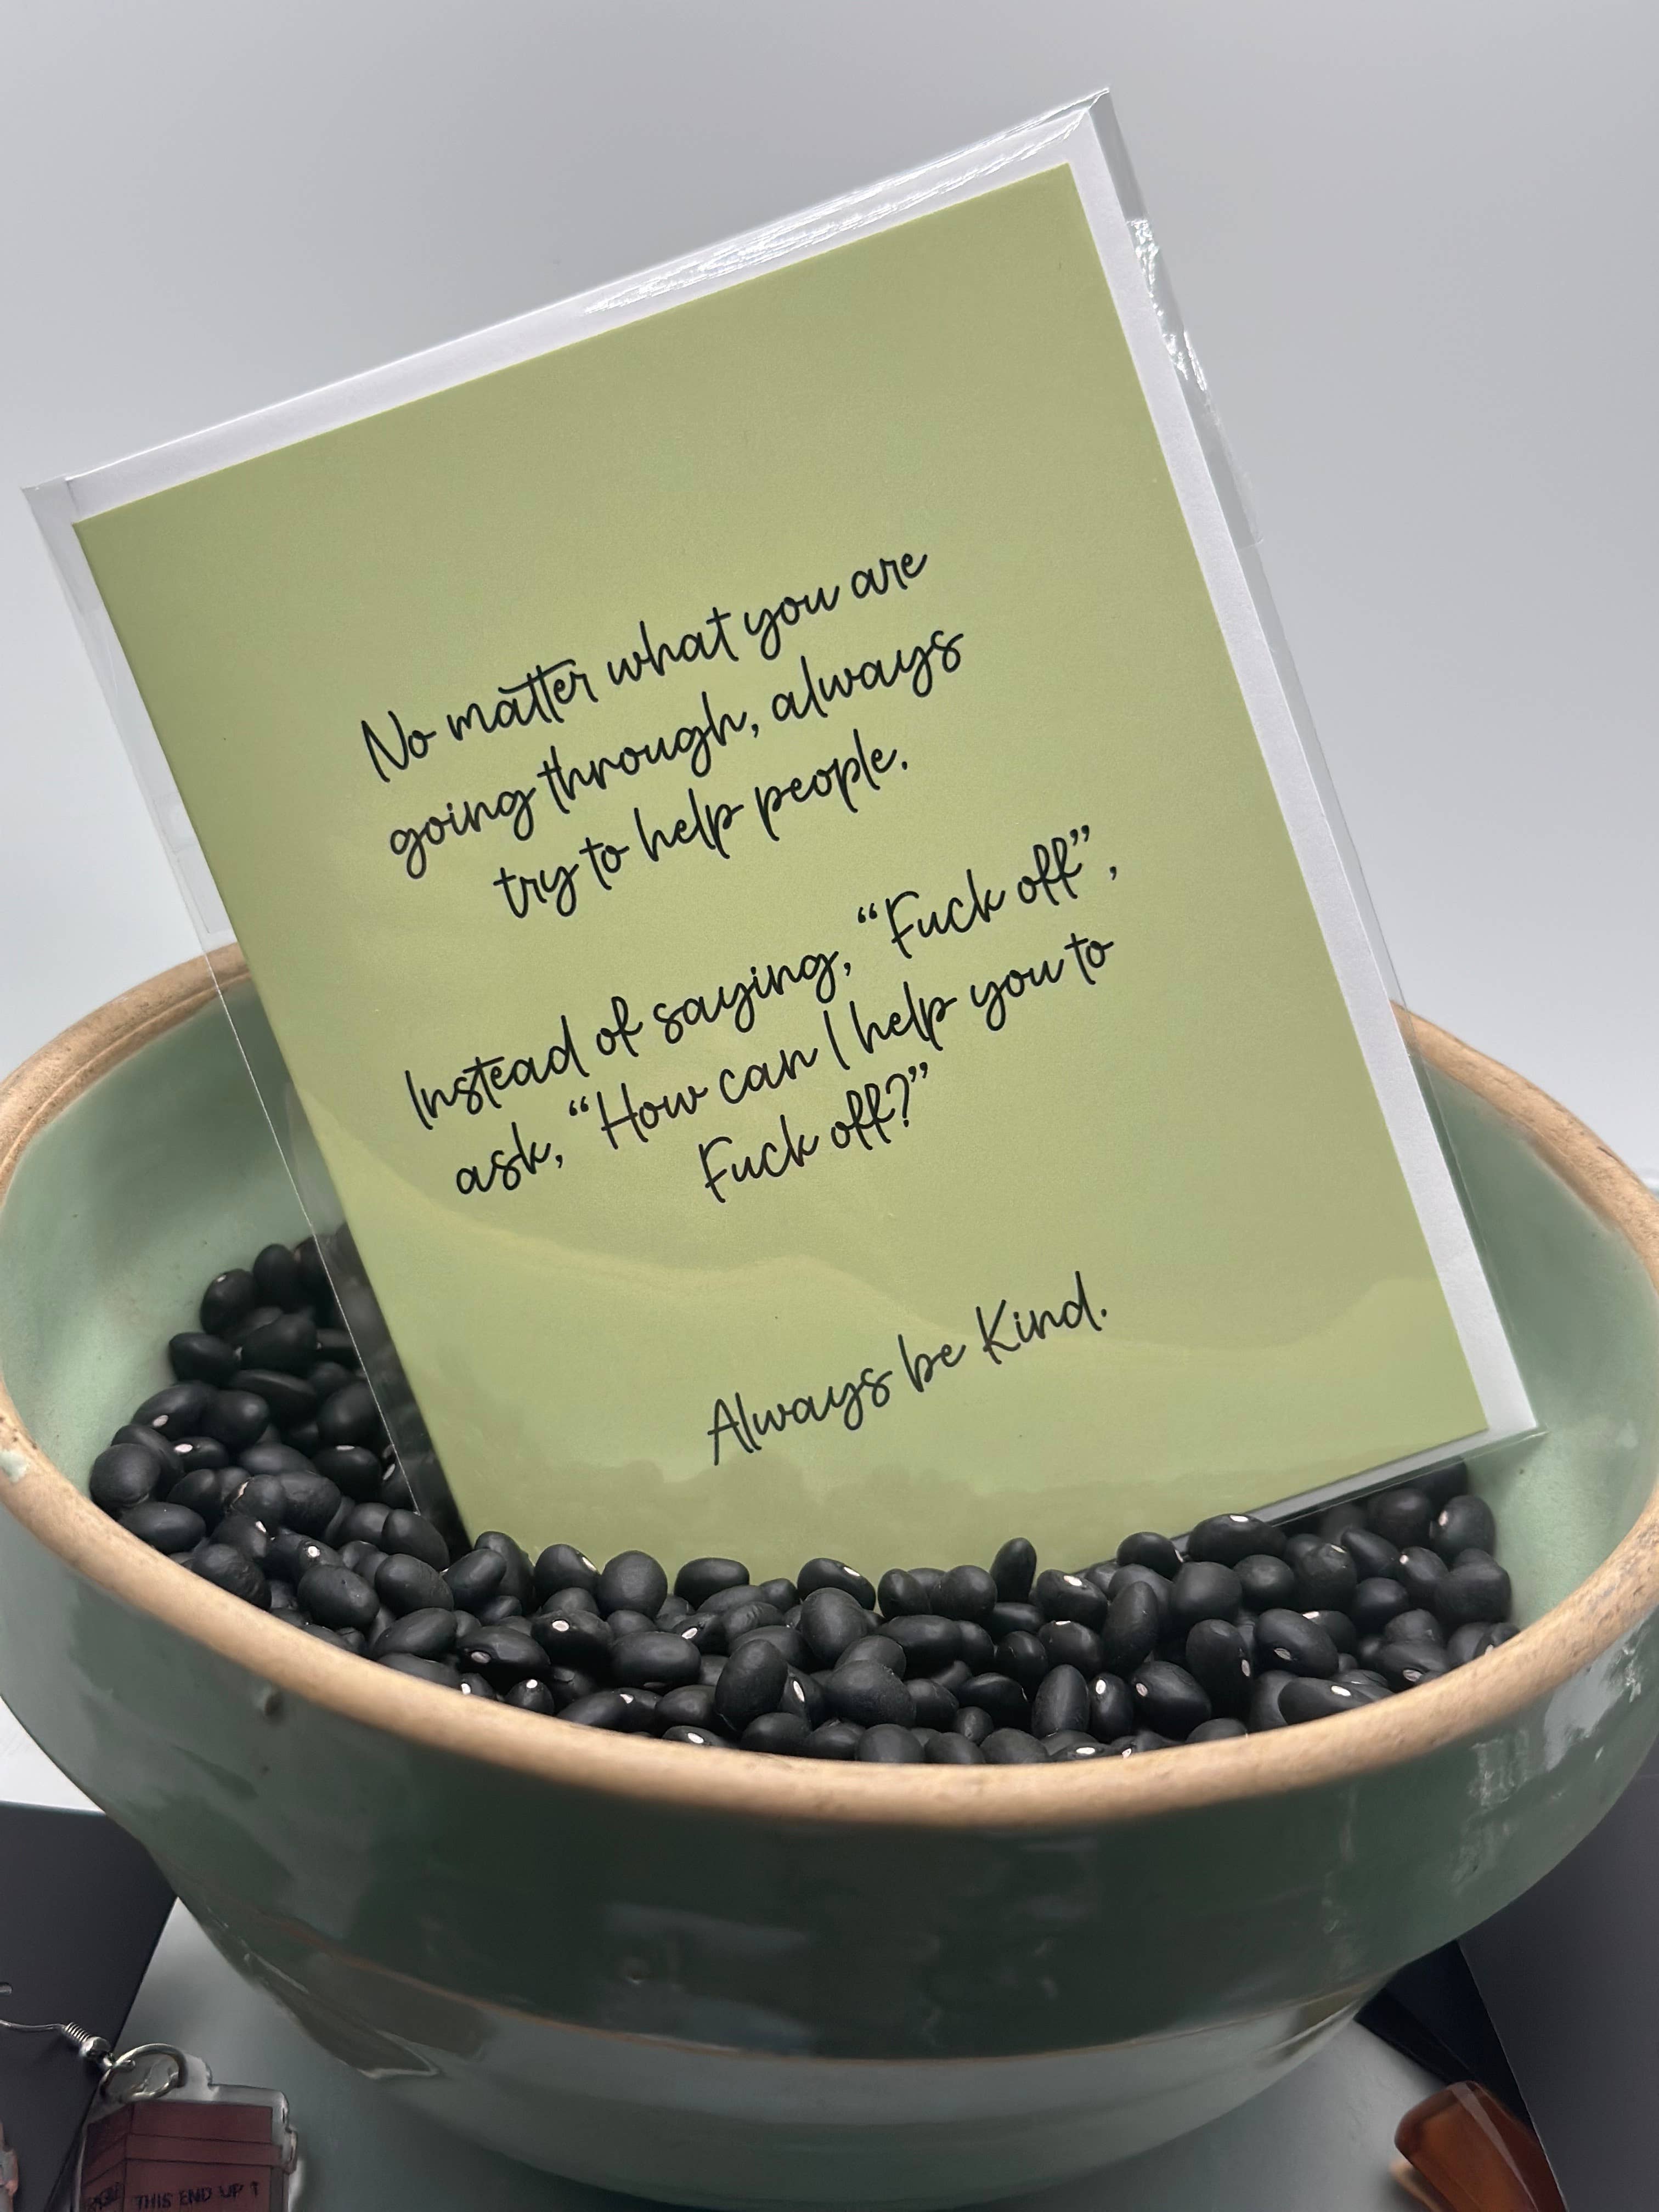 No matter what you are
going through, always
try to help people.
Instead of saying, “Fuck off”,
ask, “How can I help you to
Fuck off?”
Always be Kind.
THIS END UP ↑